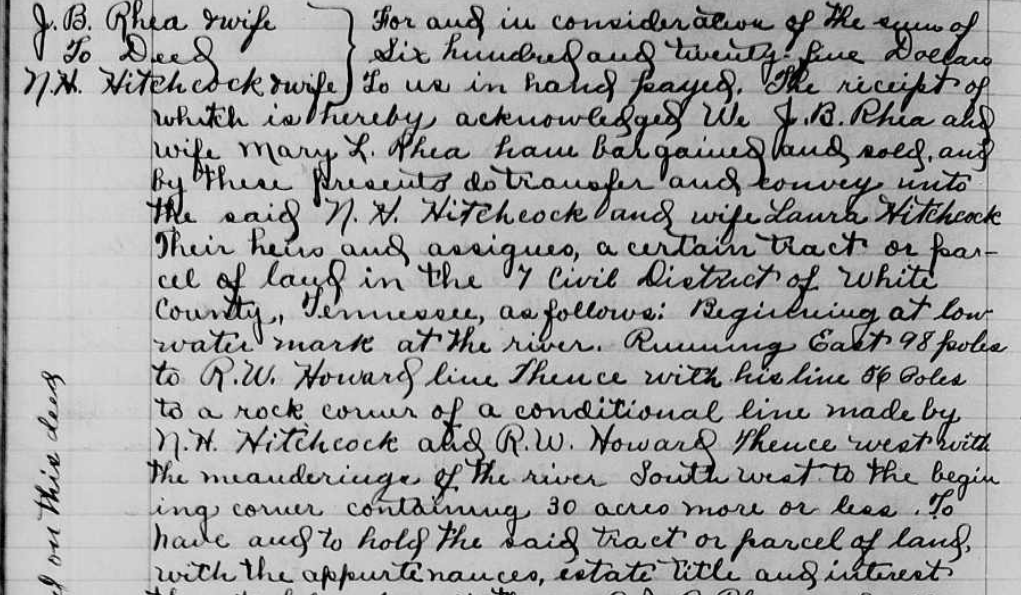 J. B. Rhea & wife
To Deed
N. H. Hitchcock & wife
For and in consideration of the sum of
Six hundred and twenty-five Dollars
To us in hand payed. The receipt of
whitch is hereby acknowledged We J. B. Rhea and
wife Mary L. Rhea have bargained and sold, and
by these presents do transfer and convey unto
the said N. H. Hitchcock and wife Laura Hitchcock
Their heirs and assignes, a certain tract or par-
cel of land in the 7 Civil District of White
County, Tennessee, as follows: Beginning at low
water mark at the river. Running East 98 poles
to R.W. Howard line Thence with his line 56 Poles
to a rock corner of a conditional line made by
N.H. Hitchcock and R.W. Howard Thence west with
the meanderings of the river South west to the begin
ing corner containing 30 acres more or less. To
have and to hold the said tract or parcel of land,
with the appurtenances, estate title and interest
on this deed